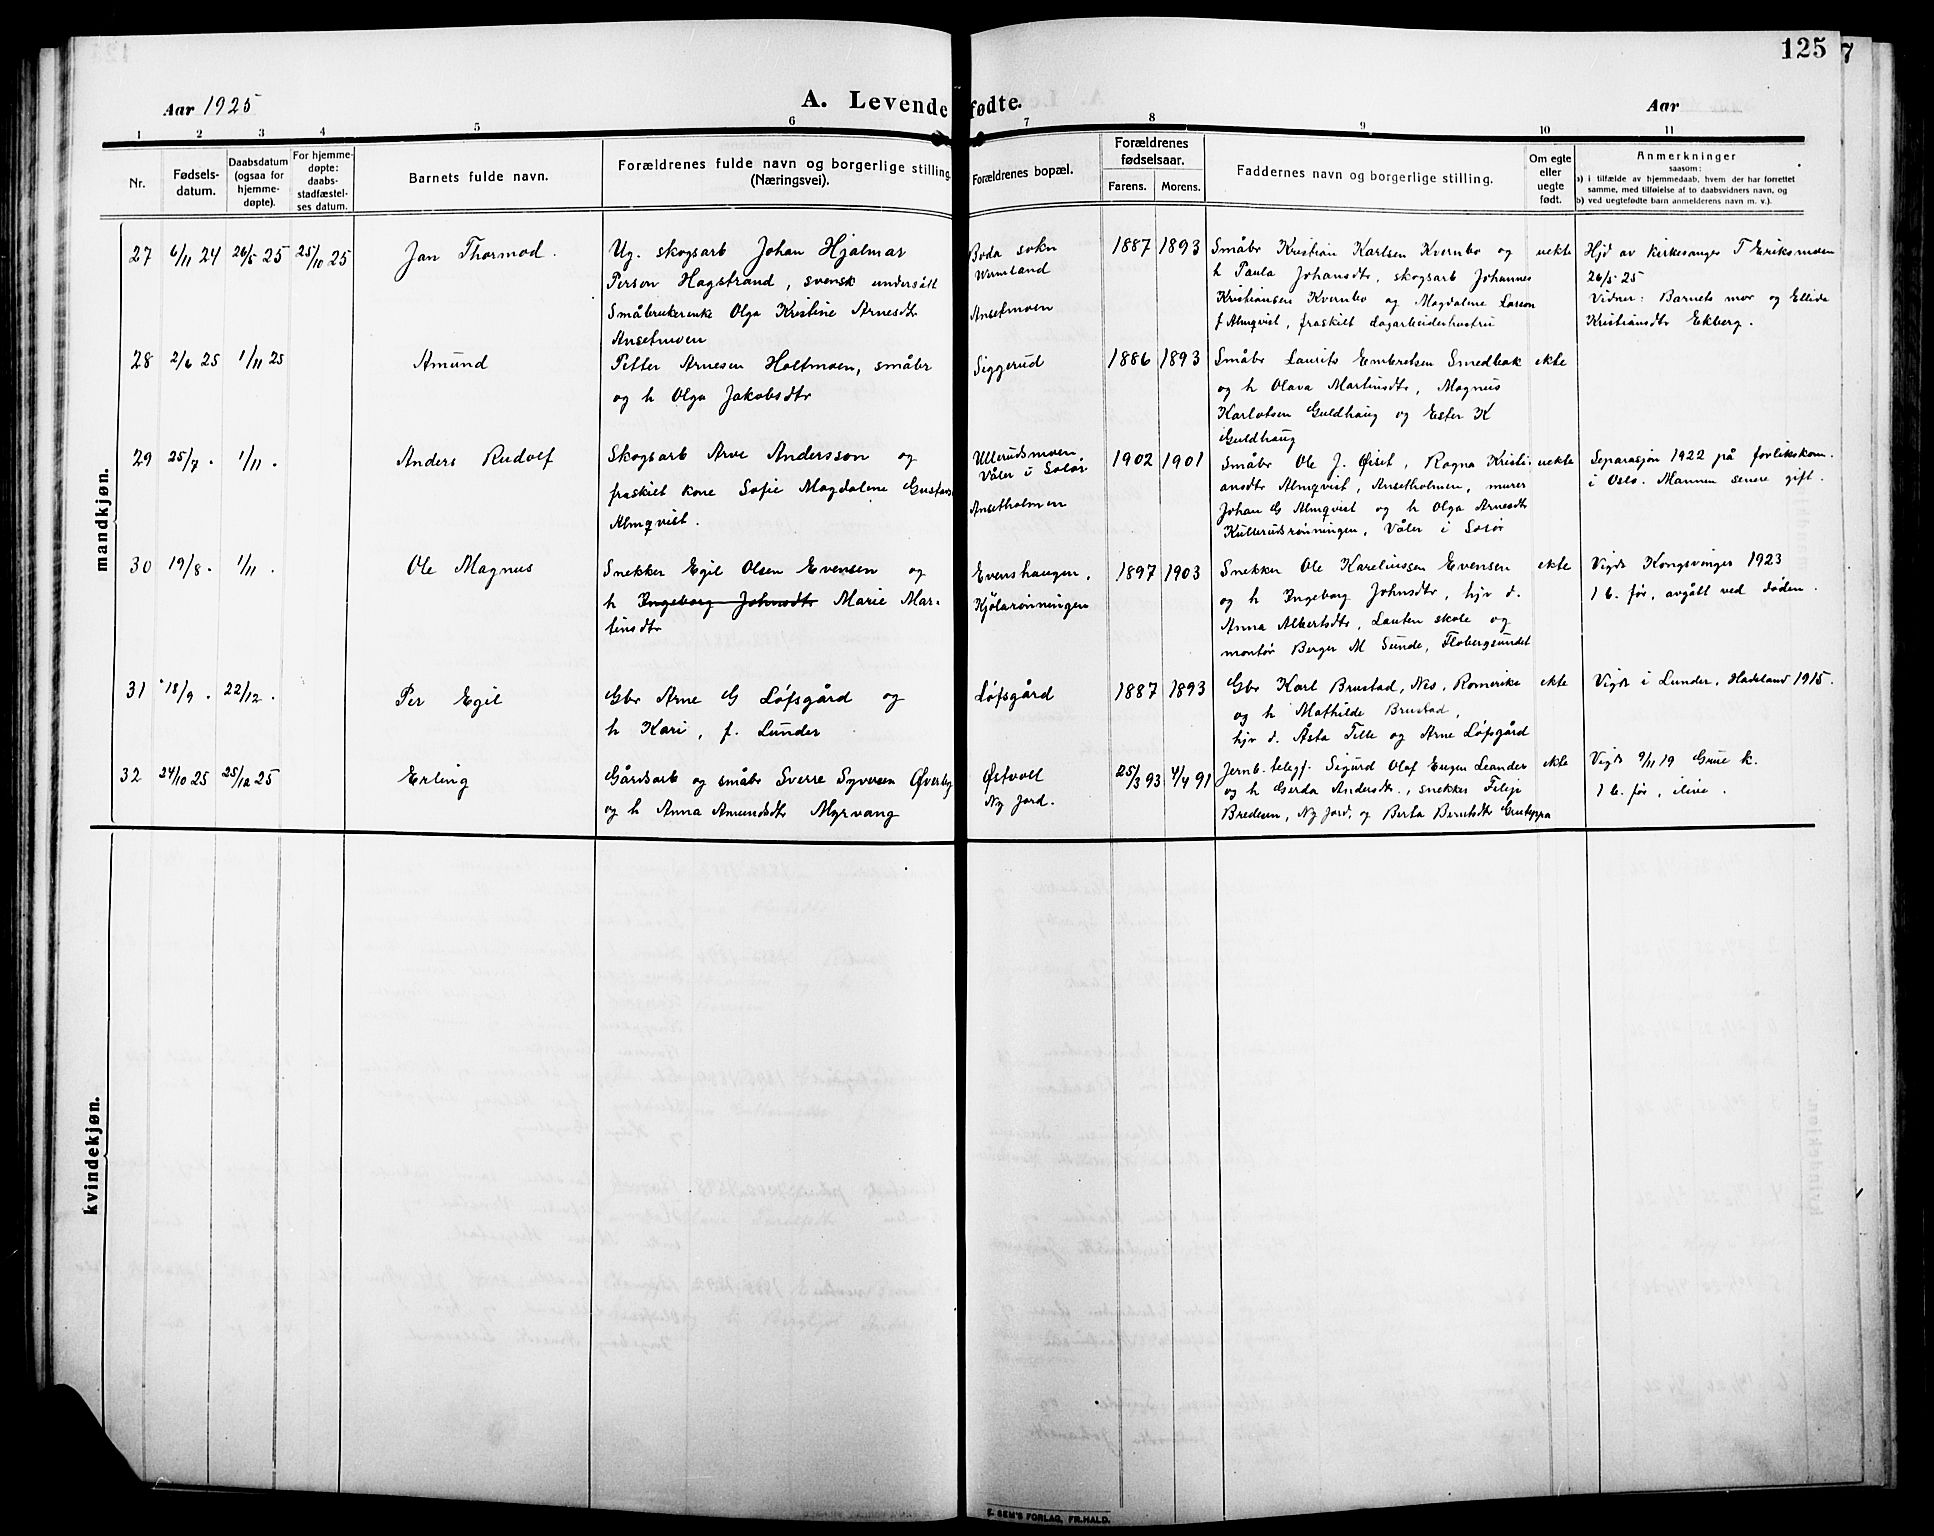 125
7
Aar 1925
A. Levende fødte.
Aar
1 2 3 4 5 6 7 8 9 10 11
Nr.
Fødsels-
datum.
Daabsdatum
(ogsaa for
hjemme-
døpte).
For hjemme-
døpte:
daabs-
stadfæstel-
ses datum.
Barnets fulde navn.
Forældrenes fulde navn og borgerlige stilling.
(Næringsvei).
Forældrenes bopæl.
Forældrenes
fødselsaar.
Farens. Morens.
Faddernes navn og borgerlige stilling.
Om egte
eller
uegte
født.
Anmerkninger
saasom:
a) i tilfælde av hjemmedaab, hvem der har forrettet
samme, med tilføielse af to daabsvidners navn, og
b) ved uegtefødte barn anmelderens navn m. v.).
mandkjøn.
27 6/11 24 26/5 25 25/10 25
Jan Thormod.
Ug. skogsarb Johan Hjalmar
Person Hagstrand, svensk undersått
Småbrukerenke Olga Kristine Arnesdtr
Ansetmoen
Boda sokn
Wermland
Ansetmoen
1887 1893
Småbr Kristian Karlsen Kvernbo og
h Paula Johansdtr, skogsarb Johannes
Kristiansen Kvernbo og Magdalene Larson
f Almqvist, fraskilt dagarbeiderhustru
uekte
Hjd av kirkesanger T Eriksmoen
26/5 25
Vidner: Barnets mor og Ellida
Kristiansdtr Ekberg.
28 2/6 25 1/11 25
Amund
Petter Arnesen Holtmoen, småbr
og h Olga Jakobsdtr
Siggerud
1886 1893
Småbr Laurits Embretsen Smedbak
og h Olava Martinsdtr, Magnus
Karlotsen Guldhaug og Ester K
Guldhaug
ekte
29 25/7 . 1/11 .
Anders Rudolf
Skogsarb Arve Andersson og
fraskilt kone Sofie Magdalene Gustavs
Almqvist.
Ullerudsmoen,
Våler i Solør
Ansetholmen
1902 1901
Småbr Ole J. Øiset, Ragna Kristi-
ansdtr Almqvist, Ansetholmen, murer
Johan G Almqvist og h Olga Arnesdtr
Kullerudsrønningen, Våler i Solør
uekte
Separasjon 1922 på forlikskom.
i Oslo. Mannen senere gift.
30 19/8 . 1/11 .
Ole Magnus
Snekker Egil Olsen Evensen og
h Ingeborg Johnsdtr Marie Mar-
tinsdtr
Evenshaugen,
Kjølarønningen
1897 1903
Snekker Ole Kareliussen Evensen
og h Ingeborg Johnsdtr, hjv d.
Anna Albertsdtr, Lauten skole og
montør Berger M Sunde, Flobergsundet
ekte
Vigde Kongsvinger 1923
1 b. før, avgått ved døden.
31 18/9 . 22/12 .
Per Egil
Gbr Arne G Løfsgård og
h Kari, f. Lunder
Løfsgård
1887 1893
Gbr Karl Brustad, Nes, Romerike
og h Mathilde Brustad,
hjv d. Åsta Tille og Arne Løfsgård
ekte
Vigde i Lunder, Hadeland 1915.
32 24/10 25 25/12 25
Erling
Gårdsarb og småbr Sverre Syversen Øverby
og h Anna Amundsdtr Myrvang
Østvoll
Ny Jord.
25/3 93 4/4 91
Jernb. telegf. Sigurd Olaf Eugen Leander
og h Gerda Andersdtr., snekker Filip
Bredesen, Ny Jord, og Berta Berntsdtr
ekte
Vigde 9/11 19 Grue k.
1 b. før, ilive.
kvindekjøn.
SEM'S FORLAG, FR.HALD.